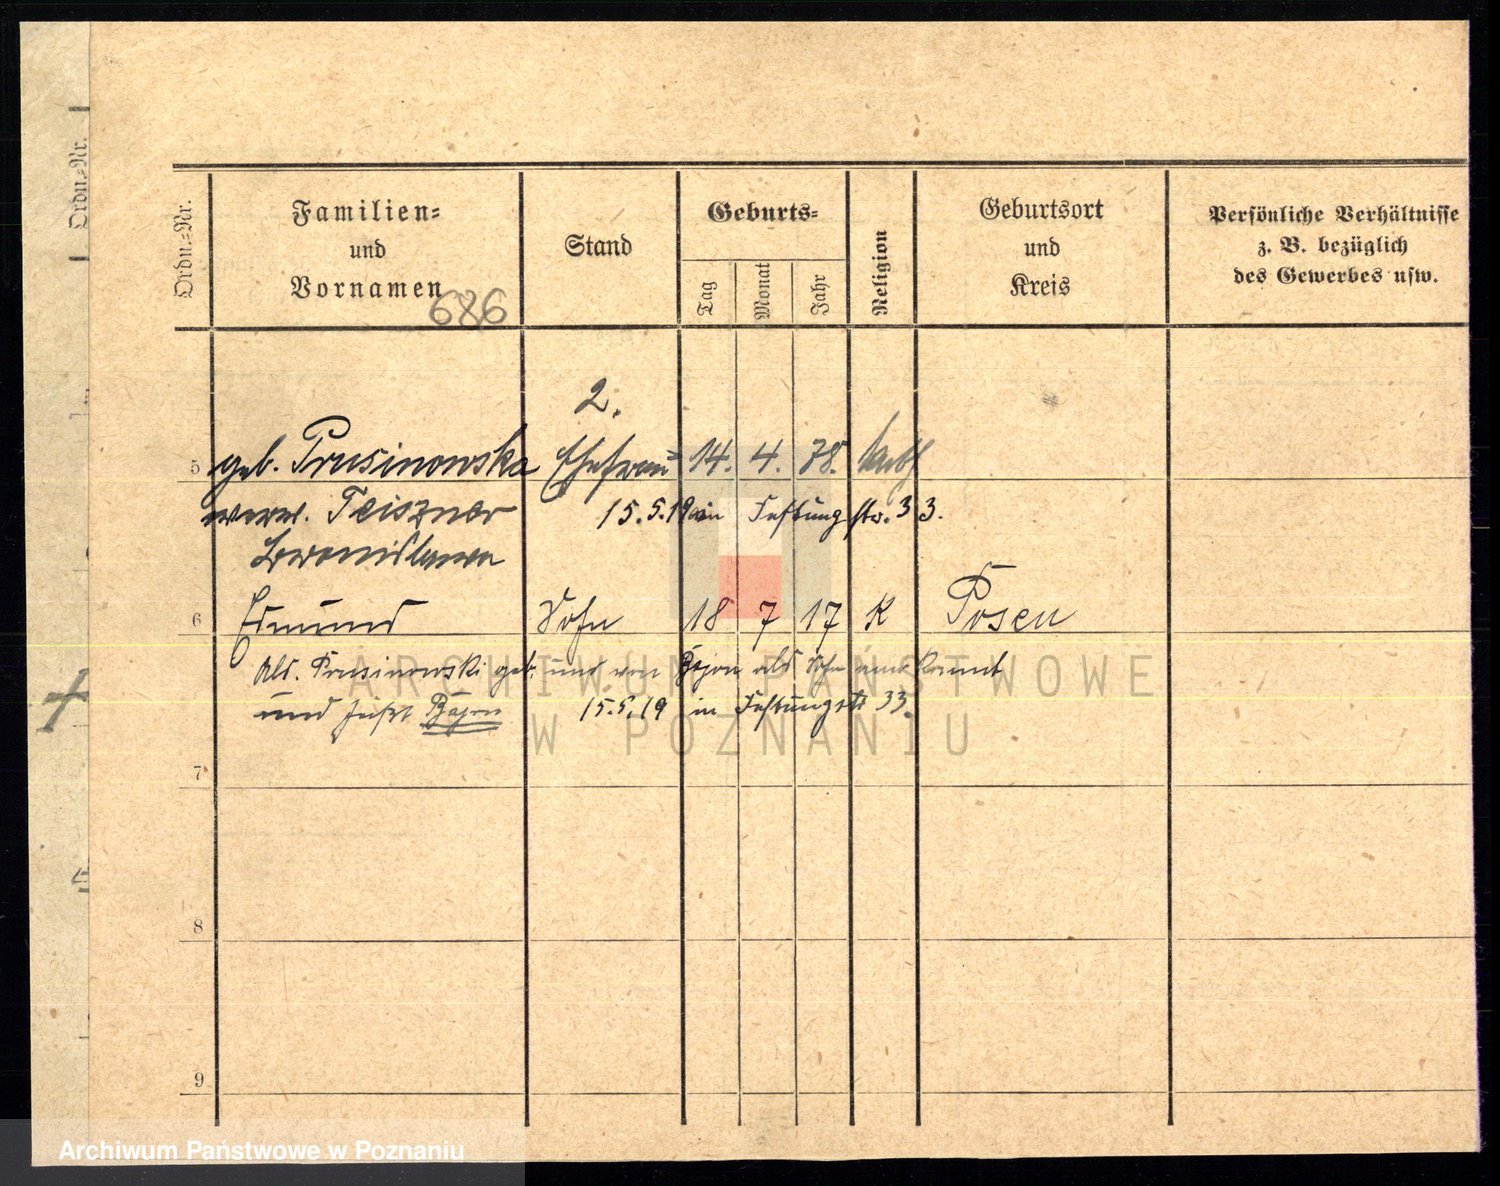 Ordn.=Nr.
Ordn.=Nr.
Familien=
und
Vornamen
686
Stand
Geburts=
Tag
Monat
Jahr
Religion
Geburtsort
und
Kreis
Persönliche Verhältnisse
z. B. bezüglich
des Gewerbes usw.
2.
5 geb. Prusinowska Ehefrau 14. 4. 78. kath
verw. Teiszner 15.5.19 in Festungstr. 33.
Bronislawa
6 Edmund Sohn 18 7 17 K Posen
als Prusinowski geb. und von Bojon als Sohn anerkannt
und heißt Bojon 15.5.19 in Festungstr 33.
7
8
9
ARCHIWUM PAŃSTWOWE
W POZNANIU
Archiwum Państwowe w Poznaniu